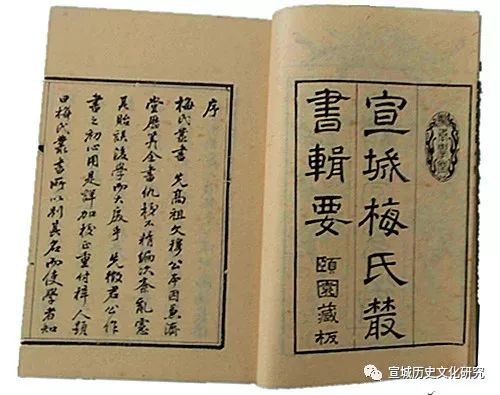 宣城梅氏叢
書輯要
頤園藏板
序
梅氏叢書 先高祖文穆公本因兼濟
堂歷算全書仇校不精編次紊亂慮
其貽誤後學而大戾乎 先徵君公作
書之初心用是詳加校正重付梓人顏
曰梅氏叢書所以別其名而使學者知
宣城历史文化研究